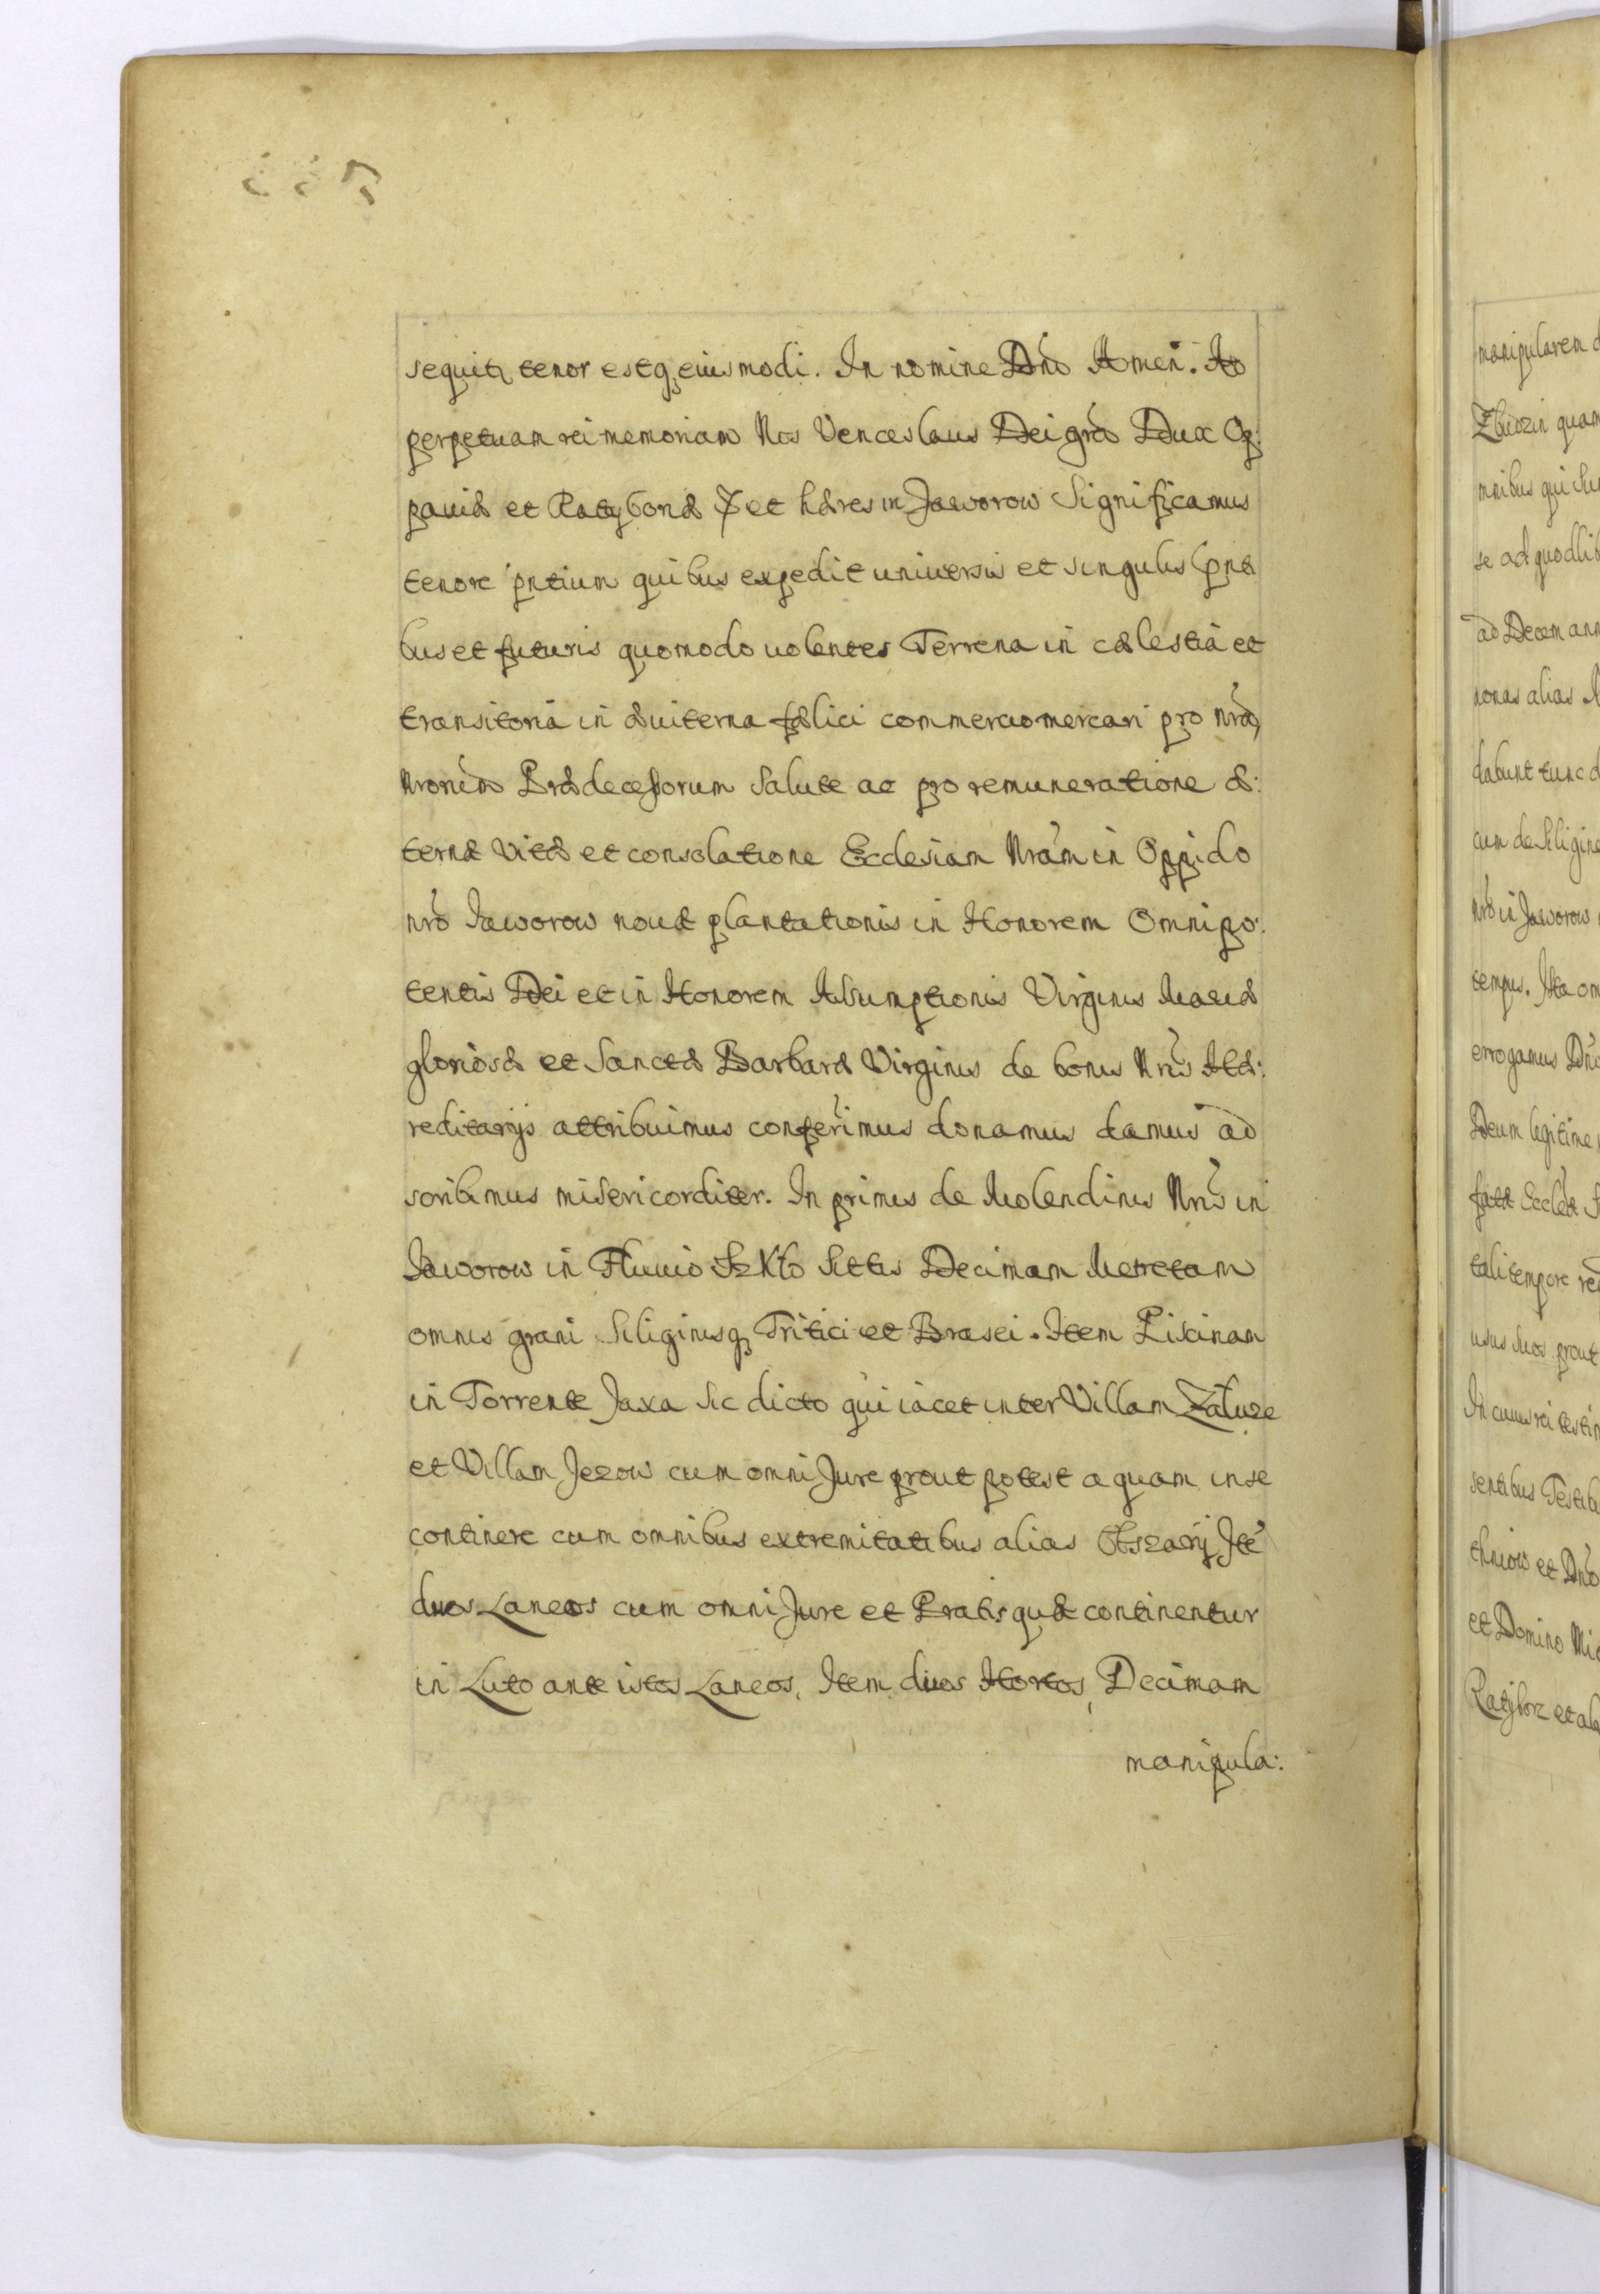 sequitr tenor estq eiusmodi. In nomine Dnō Amen. Ad
perpetuam rei memoriam Nos Venceslaus Dei gra͠ Dux Op:
paviæ et Ratyboriæ et hæres in Jaworow Significamus
tenore pn̄tium quibus expedit universis et singulis Pn̄ti
bus et futuris quomodo volentes Terrena in cælestia et
transitoria in æviterna fælici commercio mercari pro nr̄a
Nrorum Prædecessorum Salute ac pro remuneratione æ:
ternæ Vitæ et consolatione Ecclesiam Nrām in Oppido
nrō Jaworow novæ plantationis in Honorem Omnipo:
tentis Dei et in Honorem Assumptionis Virginis Mariæ
gloriosæ et Sanctæ Barbaræ Virginis de bonis Nrīs Hæ:
reditarijs attribuimus conferimus donamus damus ad
scribimus misericorditer. In primis de Molendinis Nrīs in
Jaworow in Fluvio Szkło Sittis Decimam Metretam
omnis grani Siliginisq Tritici et Brasei. Item Piscinam
in Torrente Jaxa sic dicto qui iacet inter Villam Załuze
et Villam Jezow cum omni Jure prout potest aquam in se
continere cum omnibus extremitatibus alias Obszary Ite͠
duos Laneos cum omni Jure et Pratis quæ continentur
in Luto ante istos Laneos, Item duos Hortos, Decimam
manipula:
manipularem
quam
mnibus qui
se ad quodlib
ad Decem ann
nonas alias
dabunt tunc
cum de Siligine
nrō in Jaworow
tempus. Ita om
errogamus
Deum legitime
tali tempore
usus suos prout
In cuius rei testi
sentibus Testibu
et Dnō
et Domino Mic
Ratyborz et al